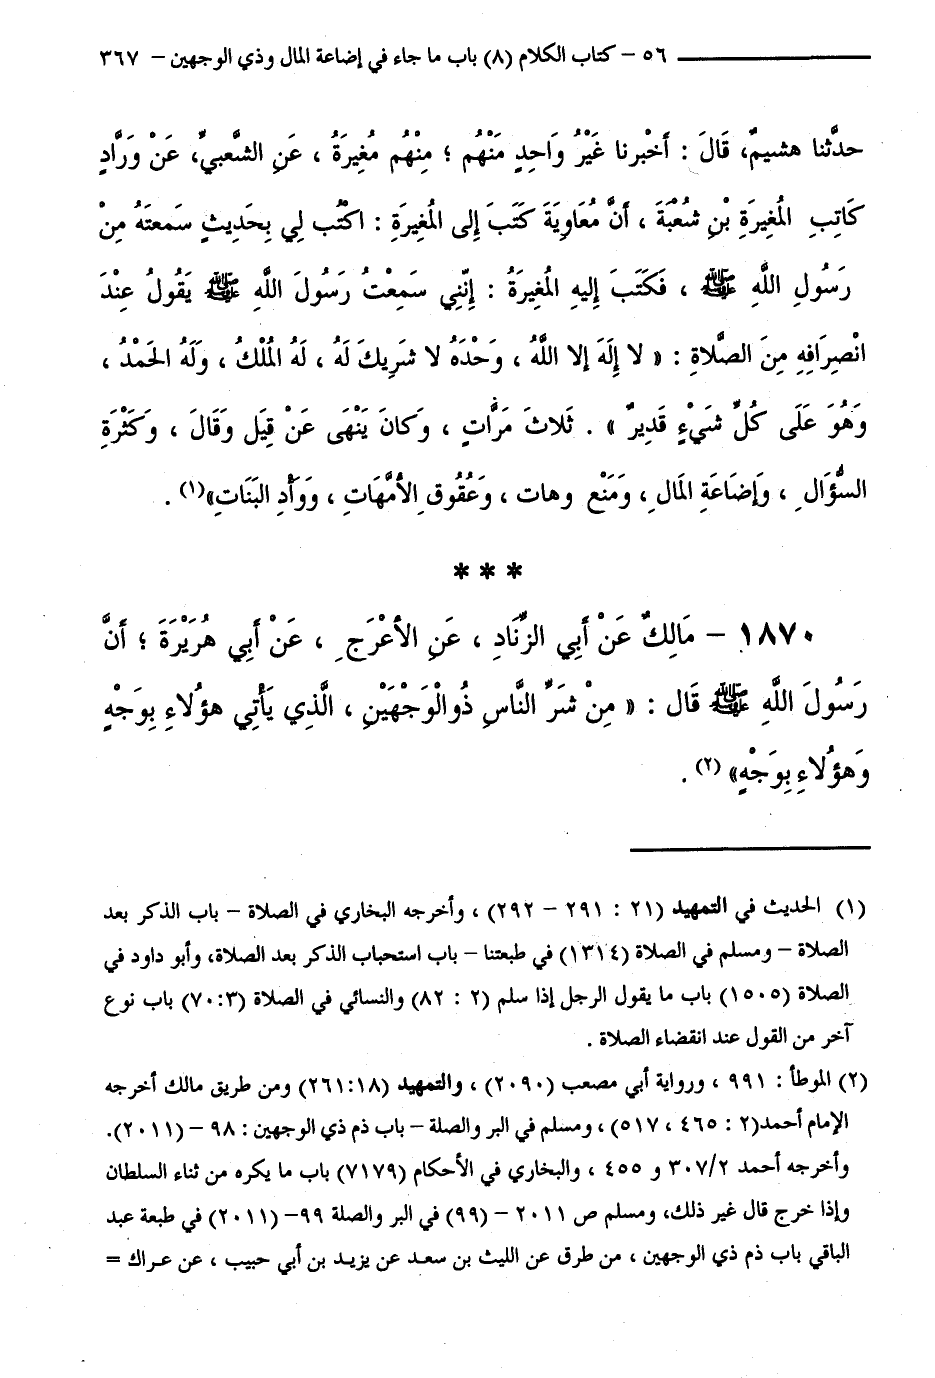 ٥٦ – كتاب الكلام (٨) باب ما جاء في إضاعة المال وذي الوجهين – ٣٦٧
حدثَّنا هشيمٌ، قَالَ : أَخْبرنا غَيْرُ وَاحِدٍ مَنْهُم ؛ مِنْهُم مُغِيرَةُ ، عَنِ الشَّعبيِّ، عَنْ وَرَّادٍ
كَاتِبِ المُغِيرَةِ بْنِ شُعْبَةَ ، أَنَّ مُعَاوِيَةَ كَتَبَ إِلى المُغِيرَةِ : اكتُب لِي بِحَدِيثٍ سَمعتَهُ مِنْ
رَسُولِ اللَّهِ ﷺ ، فَكَتَبَ إِليهِ المُغِيرَةُ : إِنّنِي سَمِعْتُ رَسُولَ اللَّهِ ﷺ يَقُولُ عِنْدَ
انْصِرَافِهِ مِنَ الصَّلاةِ : « لا إِلَهَ إلا اللَّهُ ، وَحْدَهُ لا شَرِيكَ لَهُ ، لَهُ المُلْكُ ، وَلَهُ الحَمْدُ ،
وَهُوَ عَلَى كُلِّ شَيْءٍ قَدِيرٌ » . ثَلاثَ مَرَّاتٍ ، وَكانَ يَنْهَى عَنْ قِيَل وَقَالَ ، وَكَثْرَةِ
السُّؤَالِ ، وَإِضَاعَةِ المَالِ ، وَمَنْعِ وهات ، وَعُقُوقِ الأُمَّهَاتِ ، وَوَأْدِ البَنَاتِ»(١) .
* * *
١٨٧٠ – مَالِكٌ عَنْ أَبِي الزِّنَادِ ، عَنِ الأَعْرَجِ ، عَنْ أَبِي هُرَيْرَةَ ؛ أَنَّ
رَسُولَ اللَّهِ ﷺ قَال : « مِنْ شَرِّ النَّاسِ ذُوالْوَجْهَيْنِ ، الَّذِي يَأْتِي هؤُلاءِ بِوَجْهٍ
وَهؤُلاءِ بِوَجْهٍ» (٢) .
(١) الحديث في التمهيد (٢١ : ٢٩١ – ٢٩٢) ، وأخرجه البخاري في الصلاة – باب الذكر بعد
الصلاة – ومسلم في الصلاة (١٣١٤) في طبعتنا – باب استحباب الذكر بعد الصلاة، وأبو داود في
الصلاة (١٥٠٥) باب ما يقول الرجل إذا سلم (٢ : ٨٢) والنسائي في الصلاة (٧٠:٣) باب نوع
آخر من القول عند انقضاء الصلاة .
(٢) الموطأ : ٩٩١ ، ورواية أبي مصعب (٢٠٩٠) ، والتمهيد (٢٦١:١٨) ومن طريق مالك أخرجه
الإمام أحمد(٢ : ٤٦٥ ، ٥١٧) ، ومسلم في البر والصلة – باب ذم ذي الوجهين : ٩٨ – (٢٠١١).
وأخرجه أحمد ٣٠٧/٢ و ٤٥٥ ، والبخاري في الأحكام (٧١٧٩) باب ما يكره من ثناء السلطان
وإذا خرج قال غير ذلك، ومسلم ص ٢٠١١ – (٩٩) في البر والصلة ٩٩– (٢٠١١) في طبعة عبد
الباقي باب ذم ذي الوجهين ، من طرق عن الليث بن سعد عن يزيد بن أبي حبيب ، عن عراك =